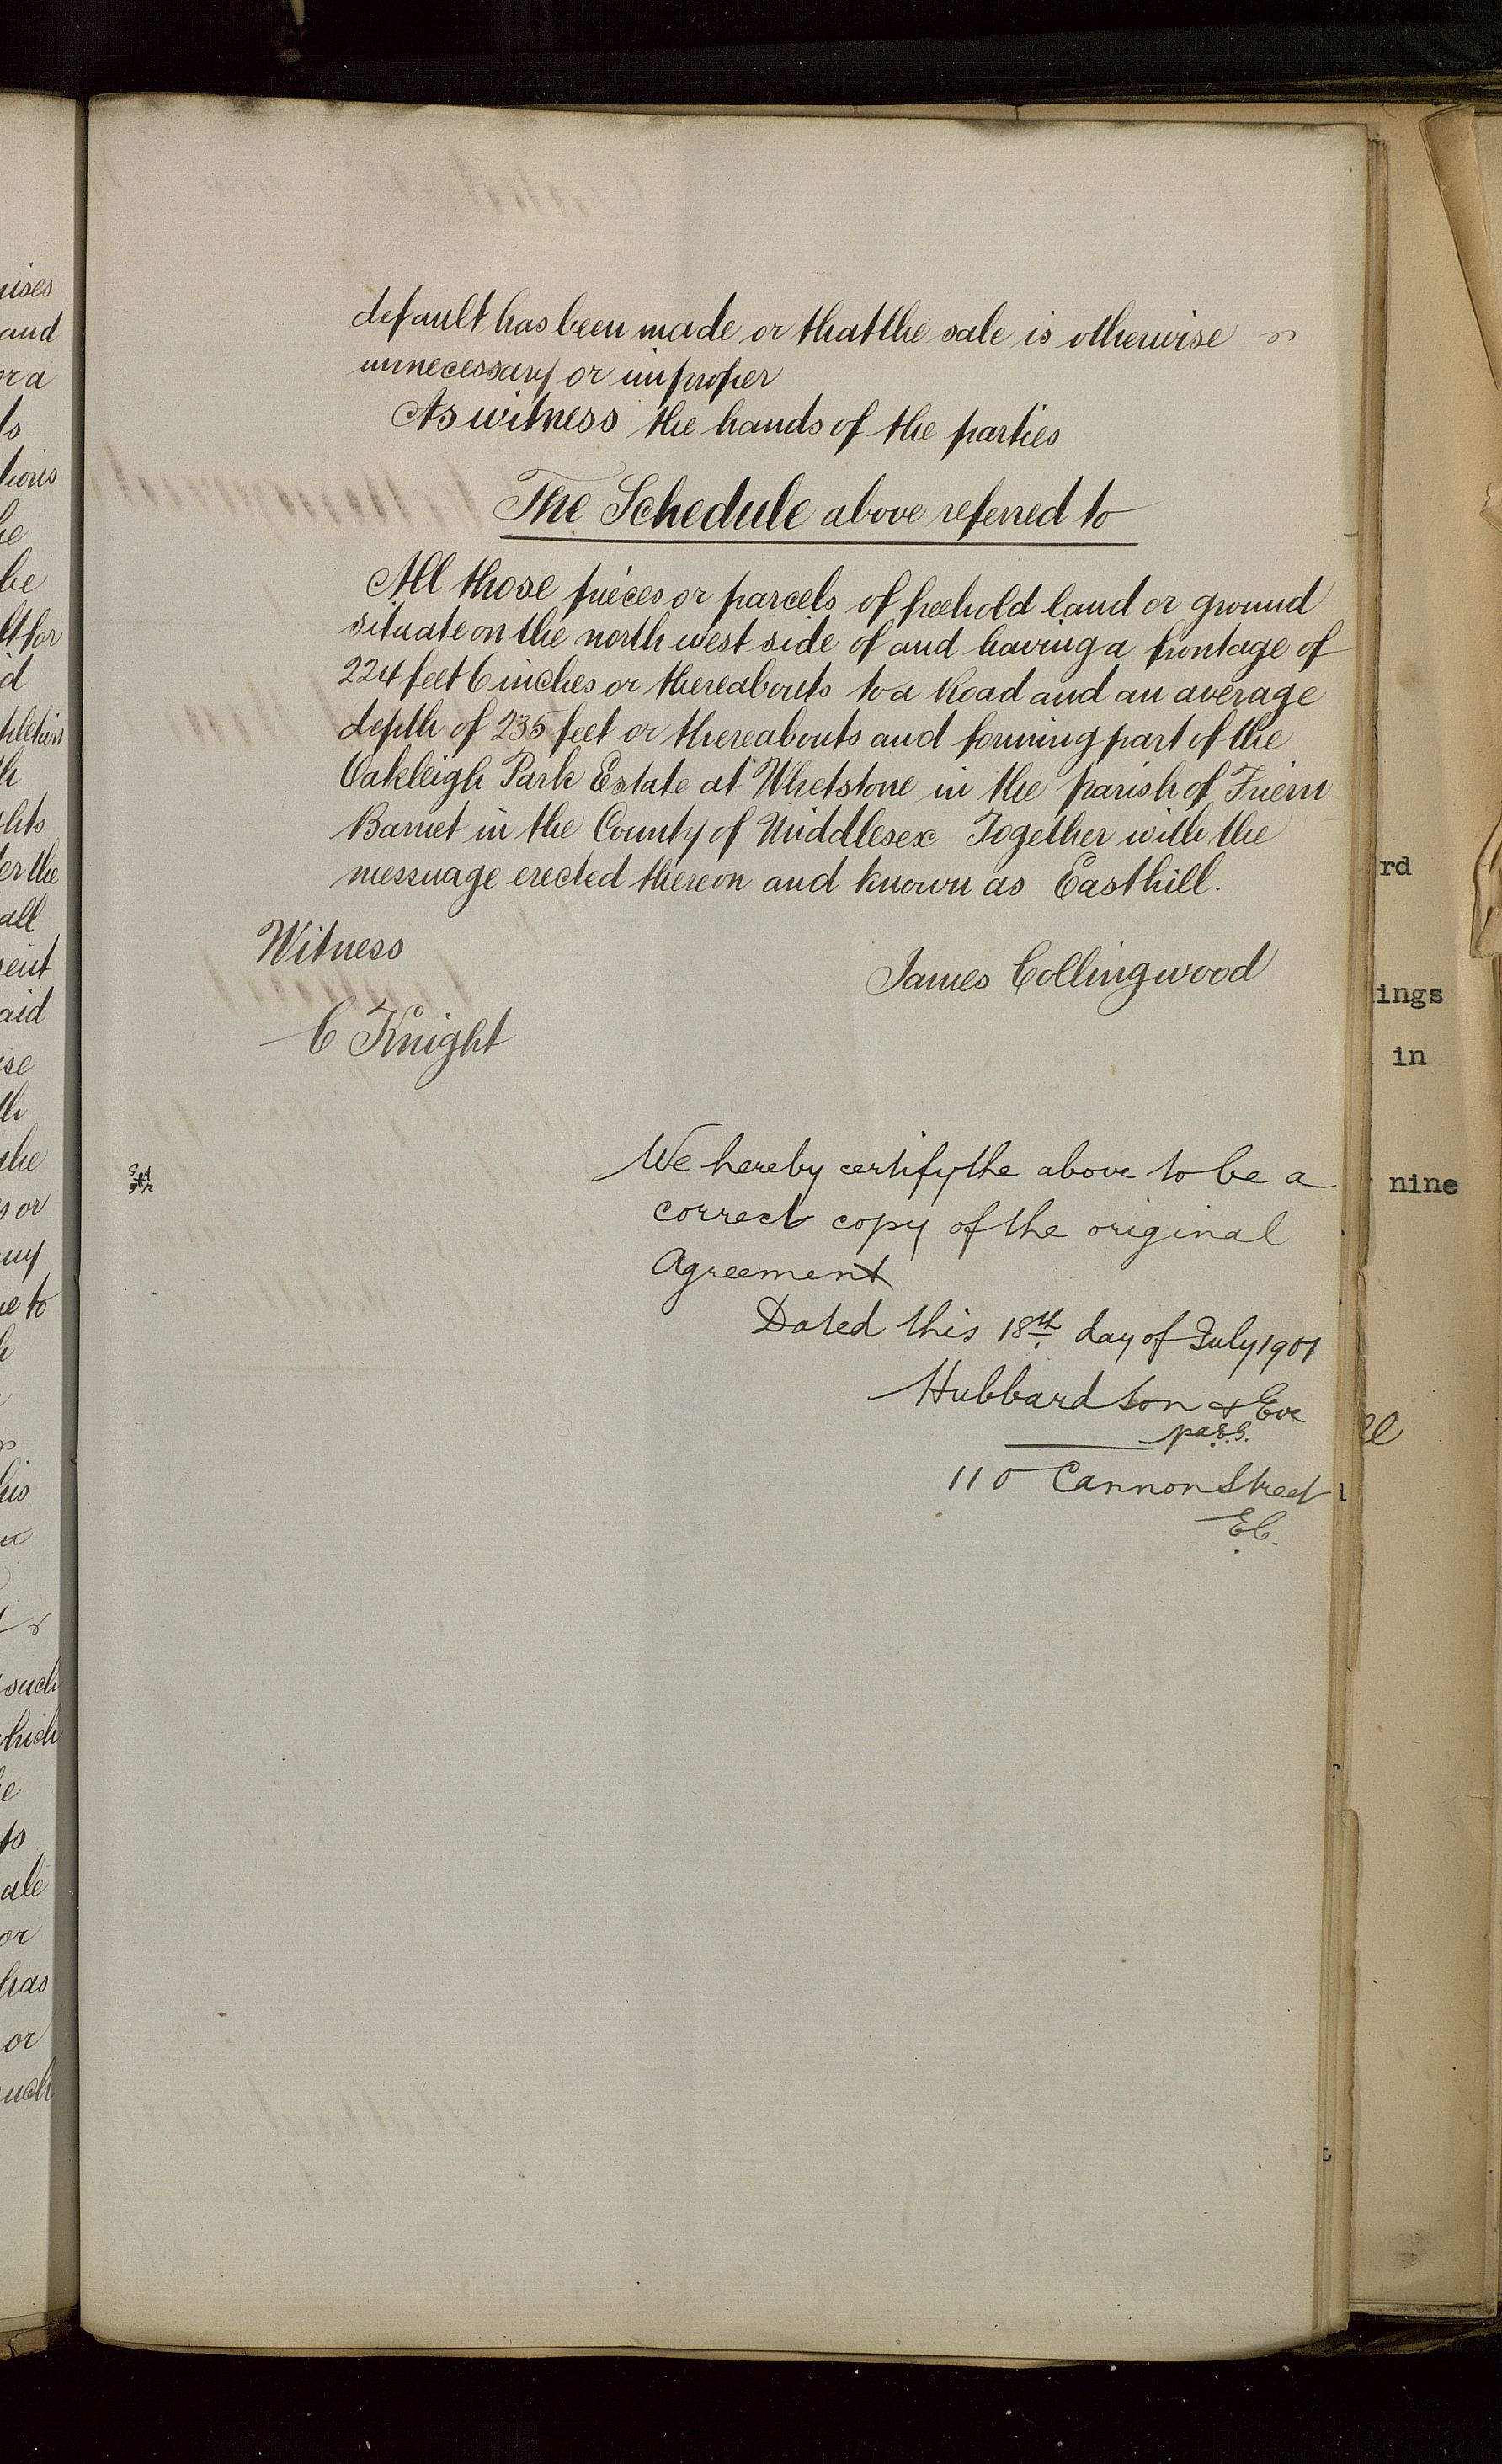 default has been made or that the sale is otherwise
unnecessary or improper
As witness the hands of the parties
The Schedule above referred to
All those pieces or parcels of freehold land or ground
situate on the north west side of and having a frontage of
224 feet 6 inches or thereabouts to a Road and an average
depth of 235 feet or thereabouts and forming part of the
Oakleigh Park Estate at Whetstone in the parish of Friern
Barnet in the County of Middlesex Together with the
messuage erected thereon and known as Easthill.
Witness
James Collingwood
C Knight
We hereby certify the above to be a
correct copy of the original
Agreement
Dated this 18th day of July 1901
Hubbard Son & Eve
110 Cannon Street
E.C.
rd
ings
in
nine
uises
and
or a
ts
tions
he
be
lt for
id
pletion
th
ghts
er the
all
sent
said
use
the
s or
any
ue to
his
such
which
ts
ale
or
has
or
such